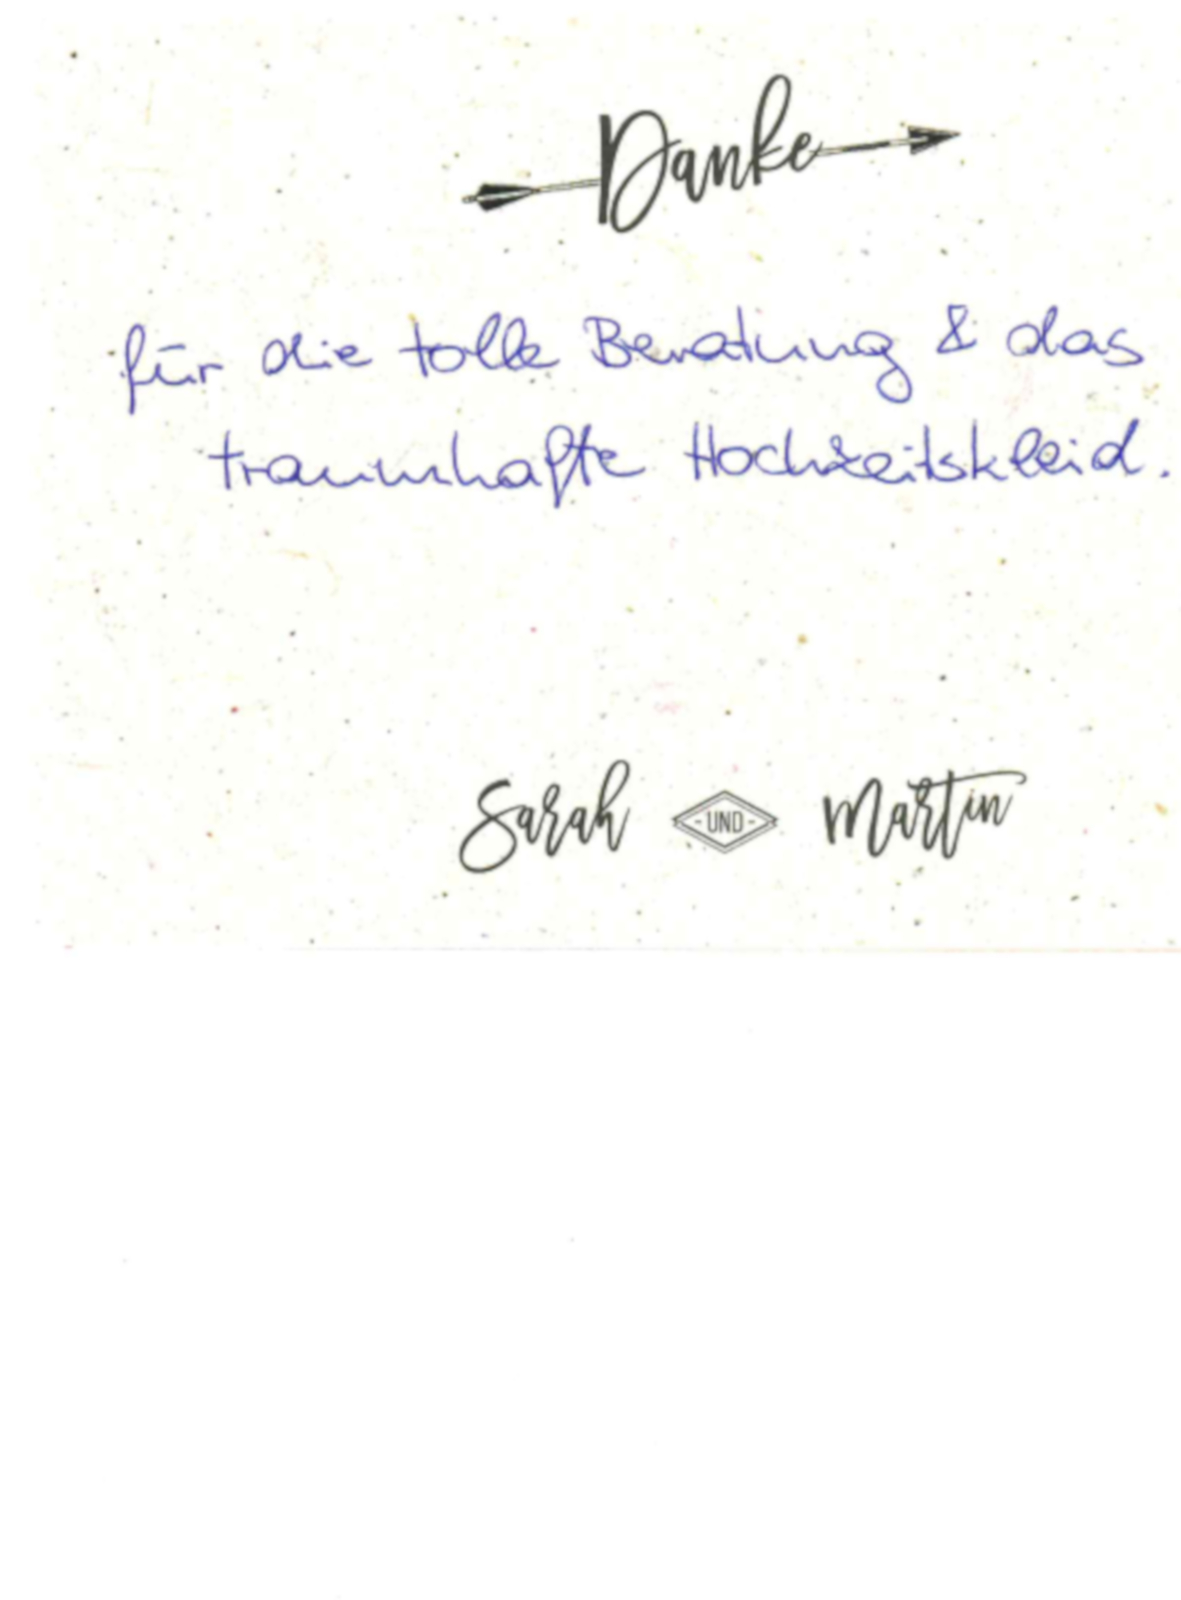 Danke
für die tolle Beratung & das
traumhafte Hochzeitskleid.
Sarah - UND - Martin